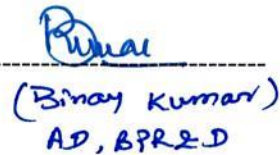 Kumar
(Binay Kumar)
AD, BPR&D